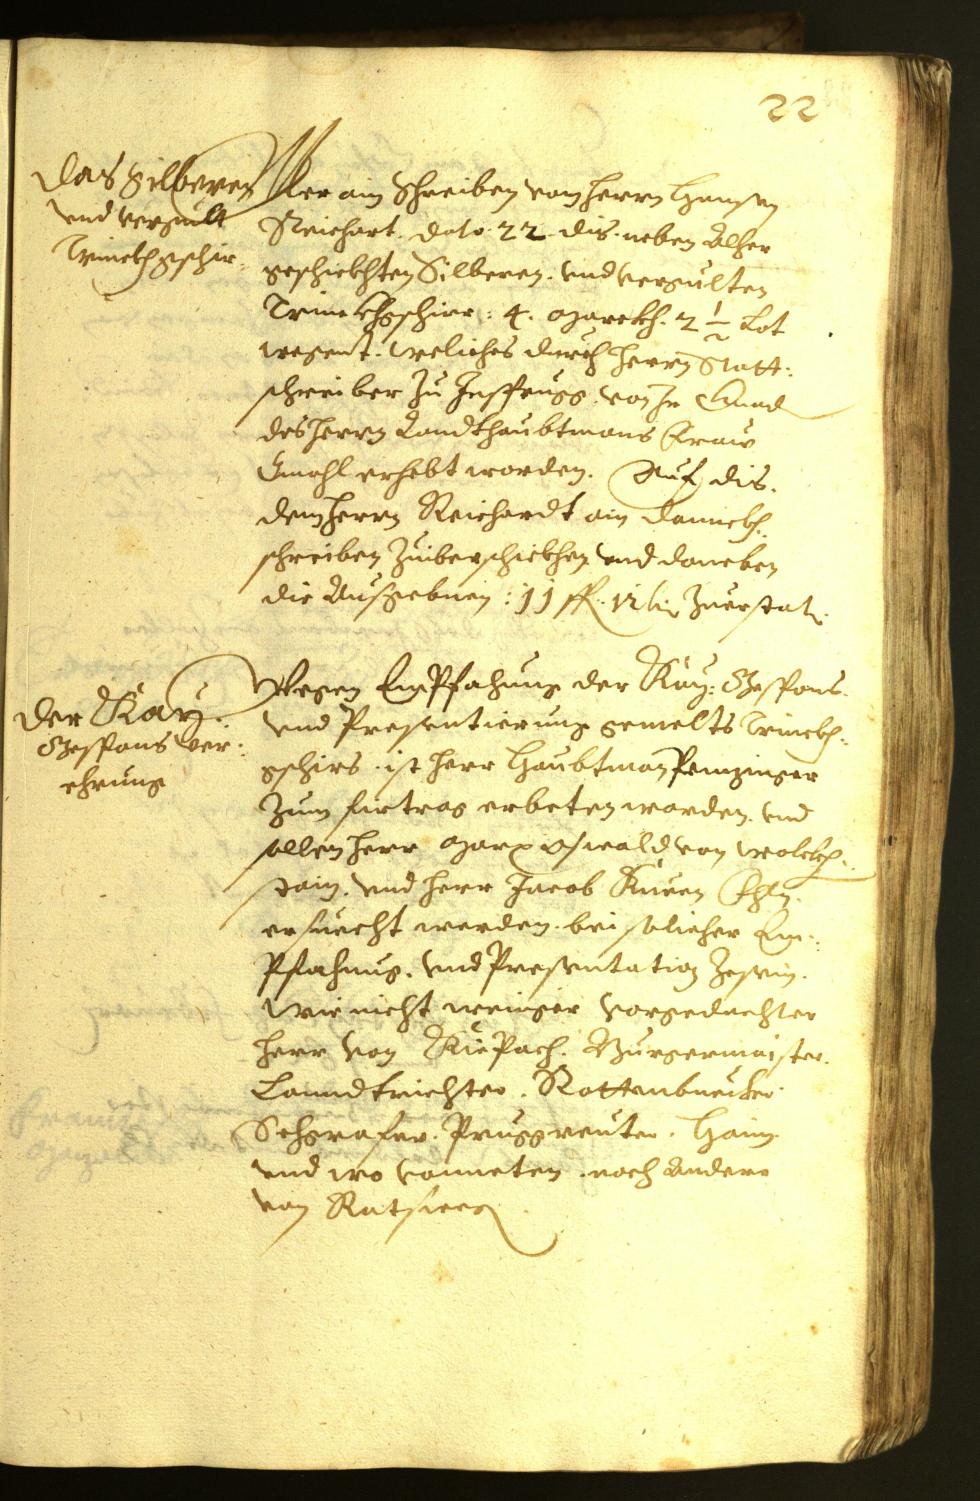 22
Das Silberen
vnd vergult
Trinckhgschir
Vber ain Schreiben von herrn Hansen
Reichart dato 22 dis neben Alher
geschickhten Silberen vnd vergulten
Trinckhgschirr: 4. Marckh. 2 1/2 Lot
wegent. weliches durch herrn Statt:
schreiber Zu Insprugg von Ir Gnad
des herrn Landthaubtmans Fraw
Gmahl erhebt worden. Auf dis.
dem herrn Reichardt ain danckh:
schreiben Zuüberschickhen vnd daneben
die Ausgebnen: 11 fl. 12 kr Zuerstatn.
Der Kay:
Gespons Ver:
ehrung
Wegen Empfahung der Kay: Gespons.
vnd Presentierung gemelts Trinckh:
gschirs. ist herr Haubtman Peinzinger
Zum firtrag erbeten worden. vnd
sollen herr Marx Oswald von Wolckh:
stain. vnd herr Jacob Kuen
ersuecht werden. bei solicher Em:
pfahung. vnd Presentation Zesein.
Wie nicht weniger vorgedachter
herr von Küepach. Burgermaister.
Lanndtrichter. Rottenbuecher.
Schgrafer. Pruggreuter. Haim
vnd wo vonneten. noch Andere
von Rat sein